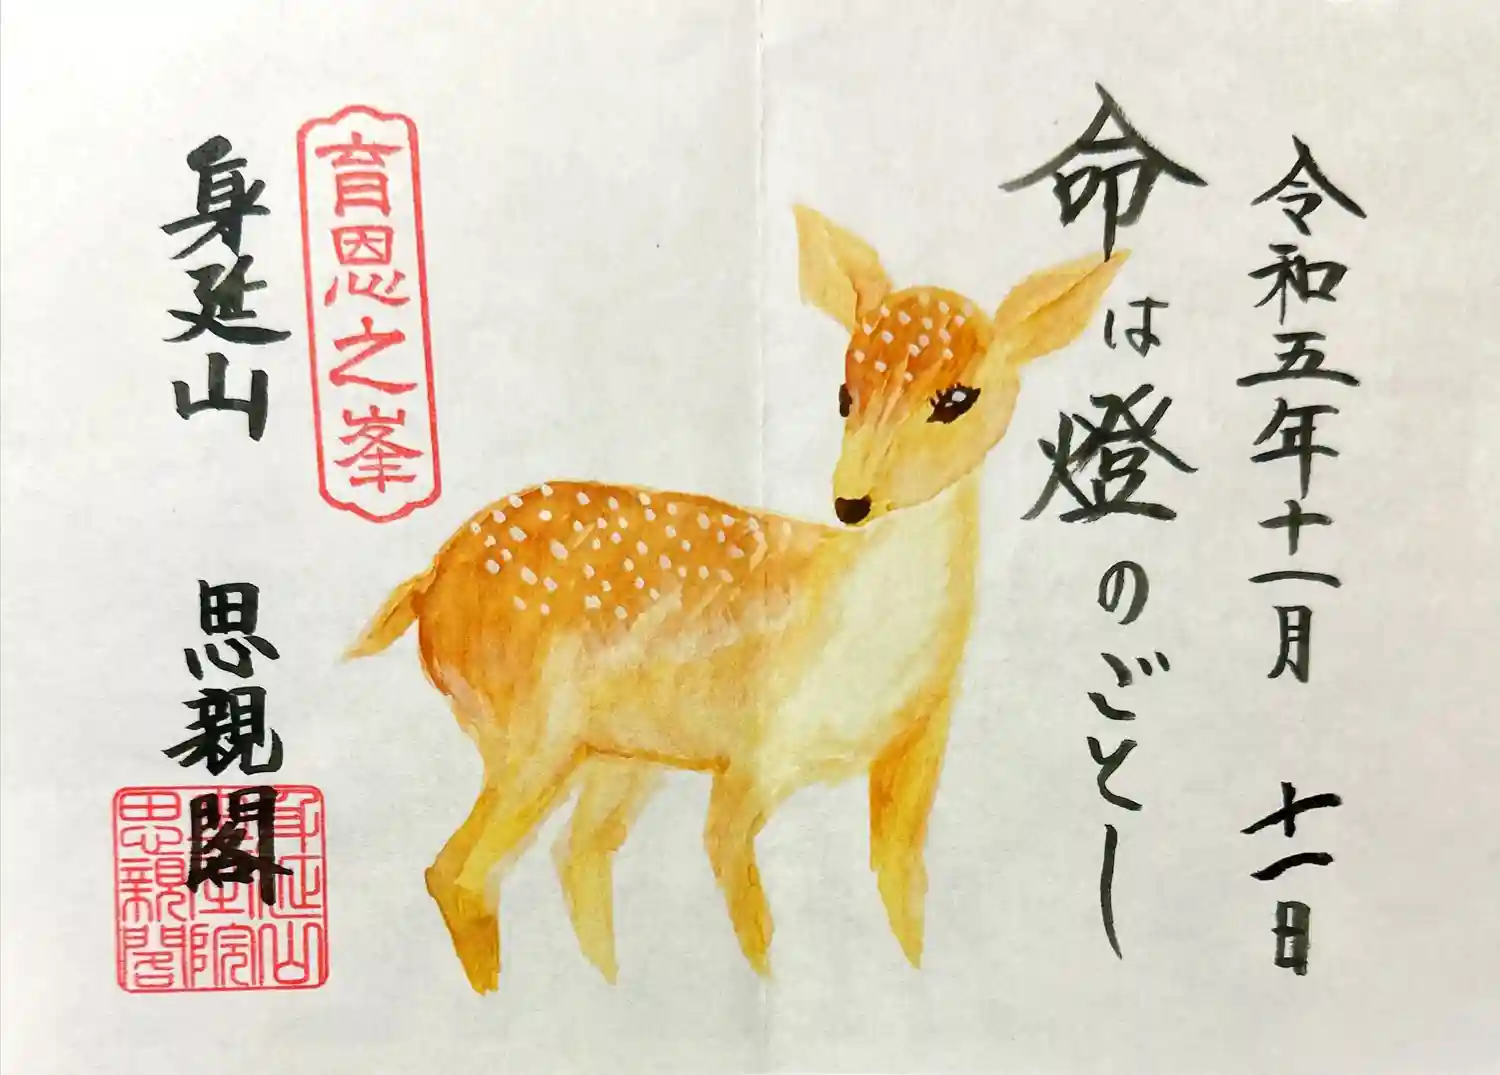 令和五年十一月 十一日
命は燈のごとし
育恩之峯
身延山 思親閣
身延山
奥之院
思親閣